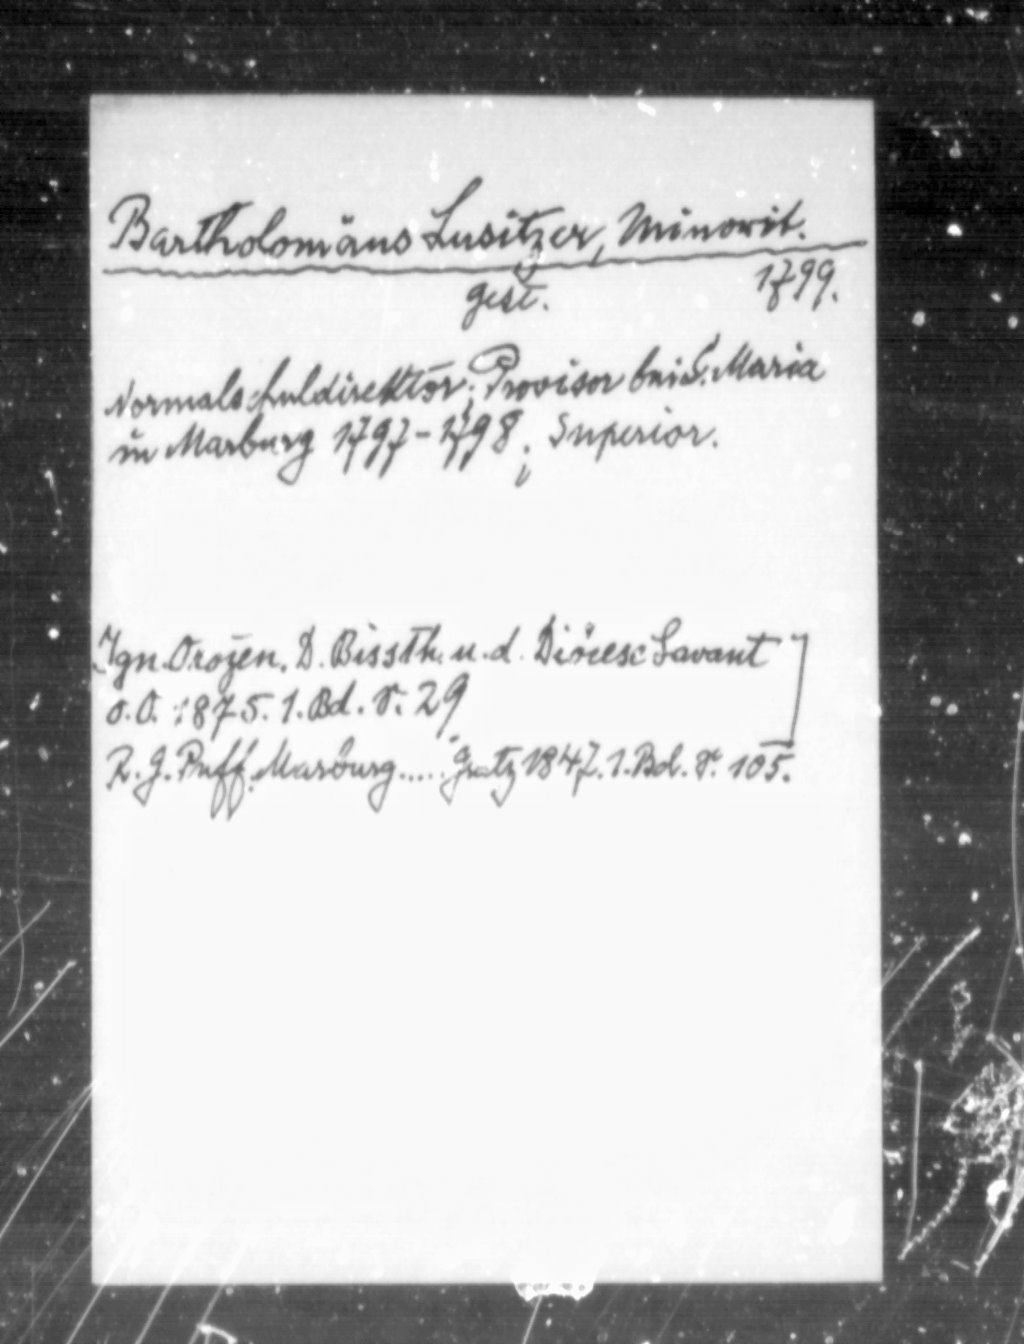 Bartholomäus Lusitzer, Minorit.
gest. 1799.
Normalschuldirektor; Provisor bei S. Maria
in Marburg 1797-1798; Superior.
Ign. Orožen. D. Bissth. u. d. Diöcese Lavant
o.O. 1875. 1. Bd. S. 29
R. G. Puff, Marburg..... Gratz 1847. 1. Bd. S. 105.